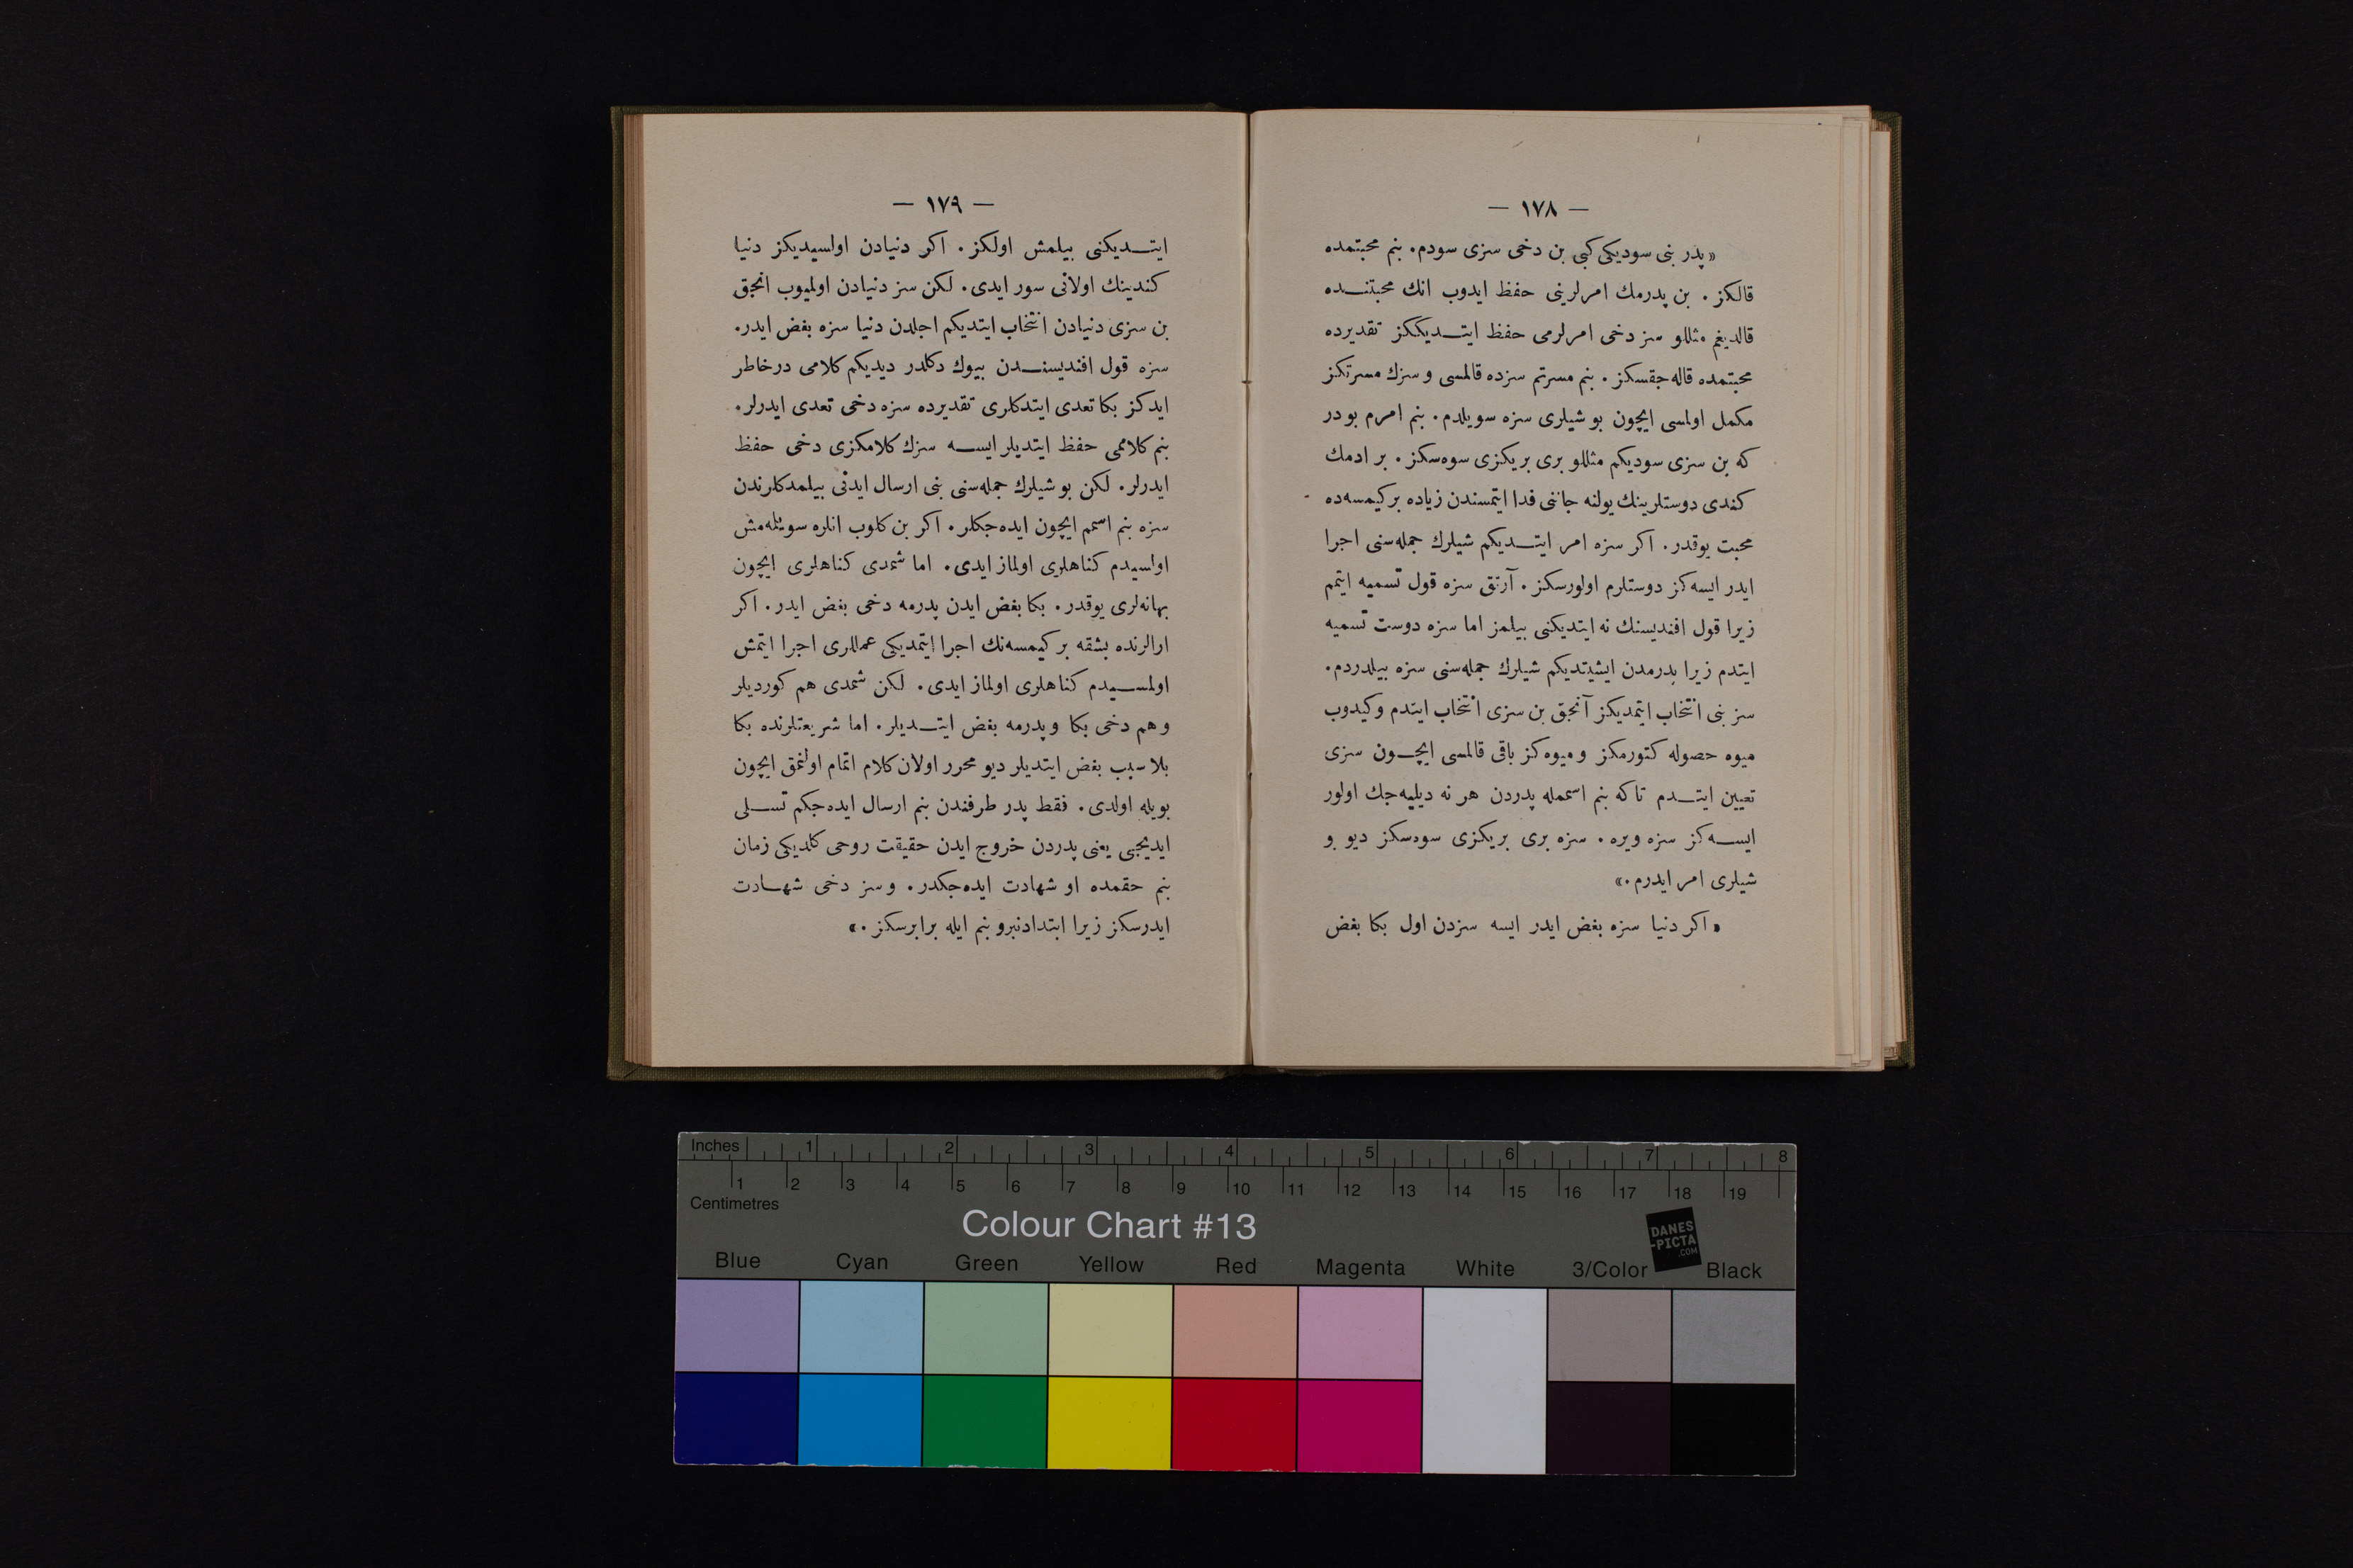 — ١٧٨ —
«پدر بنی سودیکی کبی بن دخی سزی سودم. بنم محبتمده
قالکز. بن پدرمك امرلرینی حفظ ایدوب انك محبتنده
قالدیغم مثللو سز دخی امرلرمی حفظ ایتدیککز تقدیرده
محبتمده قاله جقسکز. بنم مسرتم سزده قالمسی و سزك مسرتکز
مکمل اولمسی ایچون بو شیلری سزه سویلدم. بنم امرم بودر
که بن سزی سودیکم مثللو بری بریکزی سوه‌سکز. بر ادمك
کندی دوستلرینك یولنه جاننی فدا ایتمسندن زیاده بر کیمسه‌ده
محبت یوقدر. اکر سزه امر ایتدیکم شیلرك جمله‌سنی اجرا
ایدر ایسه‌کز دوستلرم اولورسکز. آرتق سزه قول تسمیه ایتمم
زیرا قول افندیسنك نه ایتدیکنی بیلمز اما سزه دوست تسمیه
ایتدم زیرا پدرمدن ایشیتدیکم شیلرك جمله‌سنی سزه بیلدردم.
سز بنی انتخاب ایتمدیکز آنجق بن سزی انتخاب ایتدم و کیدوب
میوه حصوله کتورمکز و میوه‌کز باقی قالمسی ایچون سزی
تعیین ایتدم تاکه بنم اسممله پدردن هر نه دیلیه‌جك اولور
ایسه‌کز سزه ویره. سزه بری بریکزی سوه‌سکز دیو بو
شیلری امر ایدرم.»
«اکر دنیا سزه بغض ایدر ایسه سزدن اول بکا بغض
— ١٧٩ —
ایتدیکنی بیلمش اولکز. اکر دنیادن اولسیدیکز دنیا
کندینك اولانی سور ایدی. لکن سز دنیادن اولمیوب انجق
بن سزی دنیادن انتخاب ایتدیکم اجلدن دنیا سزه بغض ایدر.
سزه قول افندیسندن بیوك دکلدر دیدیکم کلامی درخاطر
ایدکز بکا تعدی ایتدکلری تقدیرده سزه دخی تعدی ایدرلر.
بنم کلاممی حفظ ایتدیلر ایسه سزك کلامکزی دخی حفظ
ایدرلر. لکن بو شیلرك جمله‌سنی بنی ارسال ایدنی بیلمدکلرندن
سزه بنم اسمم ایچون ایده‌جکلر. اکر بن کلوب انلره سویلمه‌مش
اولسیدم کناهلری اولماز ایدی. اما شمدی کناهلری ایچون
بهانه‌لری یوقدر. بکا بغض ایدن پدرمه دخی بغض ایدر. اکر
ارالرنده بشقه بر کیمسه‌نك اجرا ایتمدیکی عمللری اجرا ایتمش
اولمسیدم کناهلری اولماز ایدی. لکن شمدی هم کوردیلر
و هم دخی بکا و پدرمه بغض ایتدیلر. اما شریعتلرنده بکا
بلا سبب بغض ایتدیلر دیو محرر اولان کلام اتمام اولنمق ایچون
بویله اولدی. فقط پدر طرفندن بنم ارسال ایده‌جکم تسلی
ایدیجی یعنی پدردن خروج ایدن حقیقت روحی کلدیکی زمان
بنم حقمده او شهادت ایده‌جکدر. و سز دخی شهادت
ایدرسکز زیرا ابتدادنبرو بنم ایله برابرسکز.»
Inches 1 2 3 4 5 6 7 8
1 2 3 4 5 6 7 8 9 10 11 12 13 14 15 16 17 18 19
Centimetres
Colour Chart #13
DANES
-PICTA
.COM
Blue Cyan Green Yellow Red Magenta White 3/Color Black